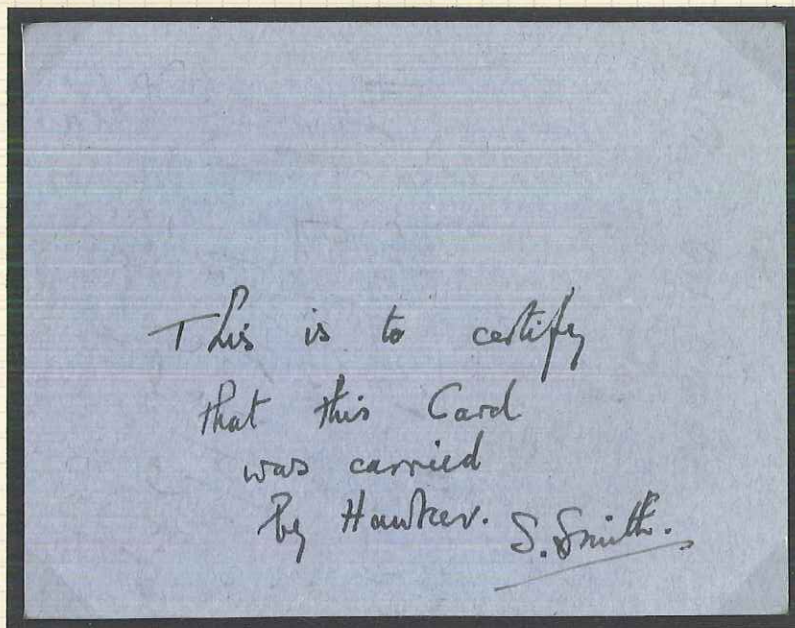 This is to certify
that this Card
was carried
by Hawker. S. Smith.